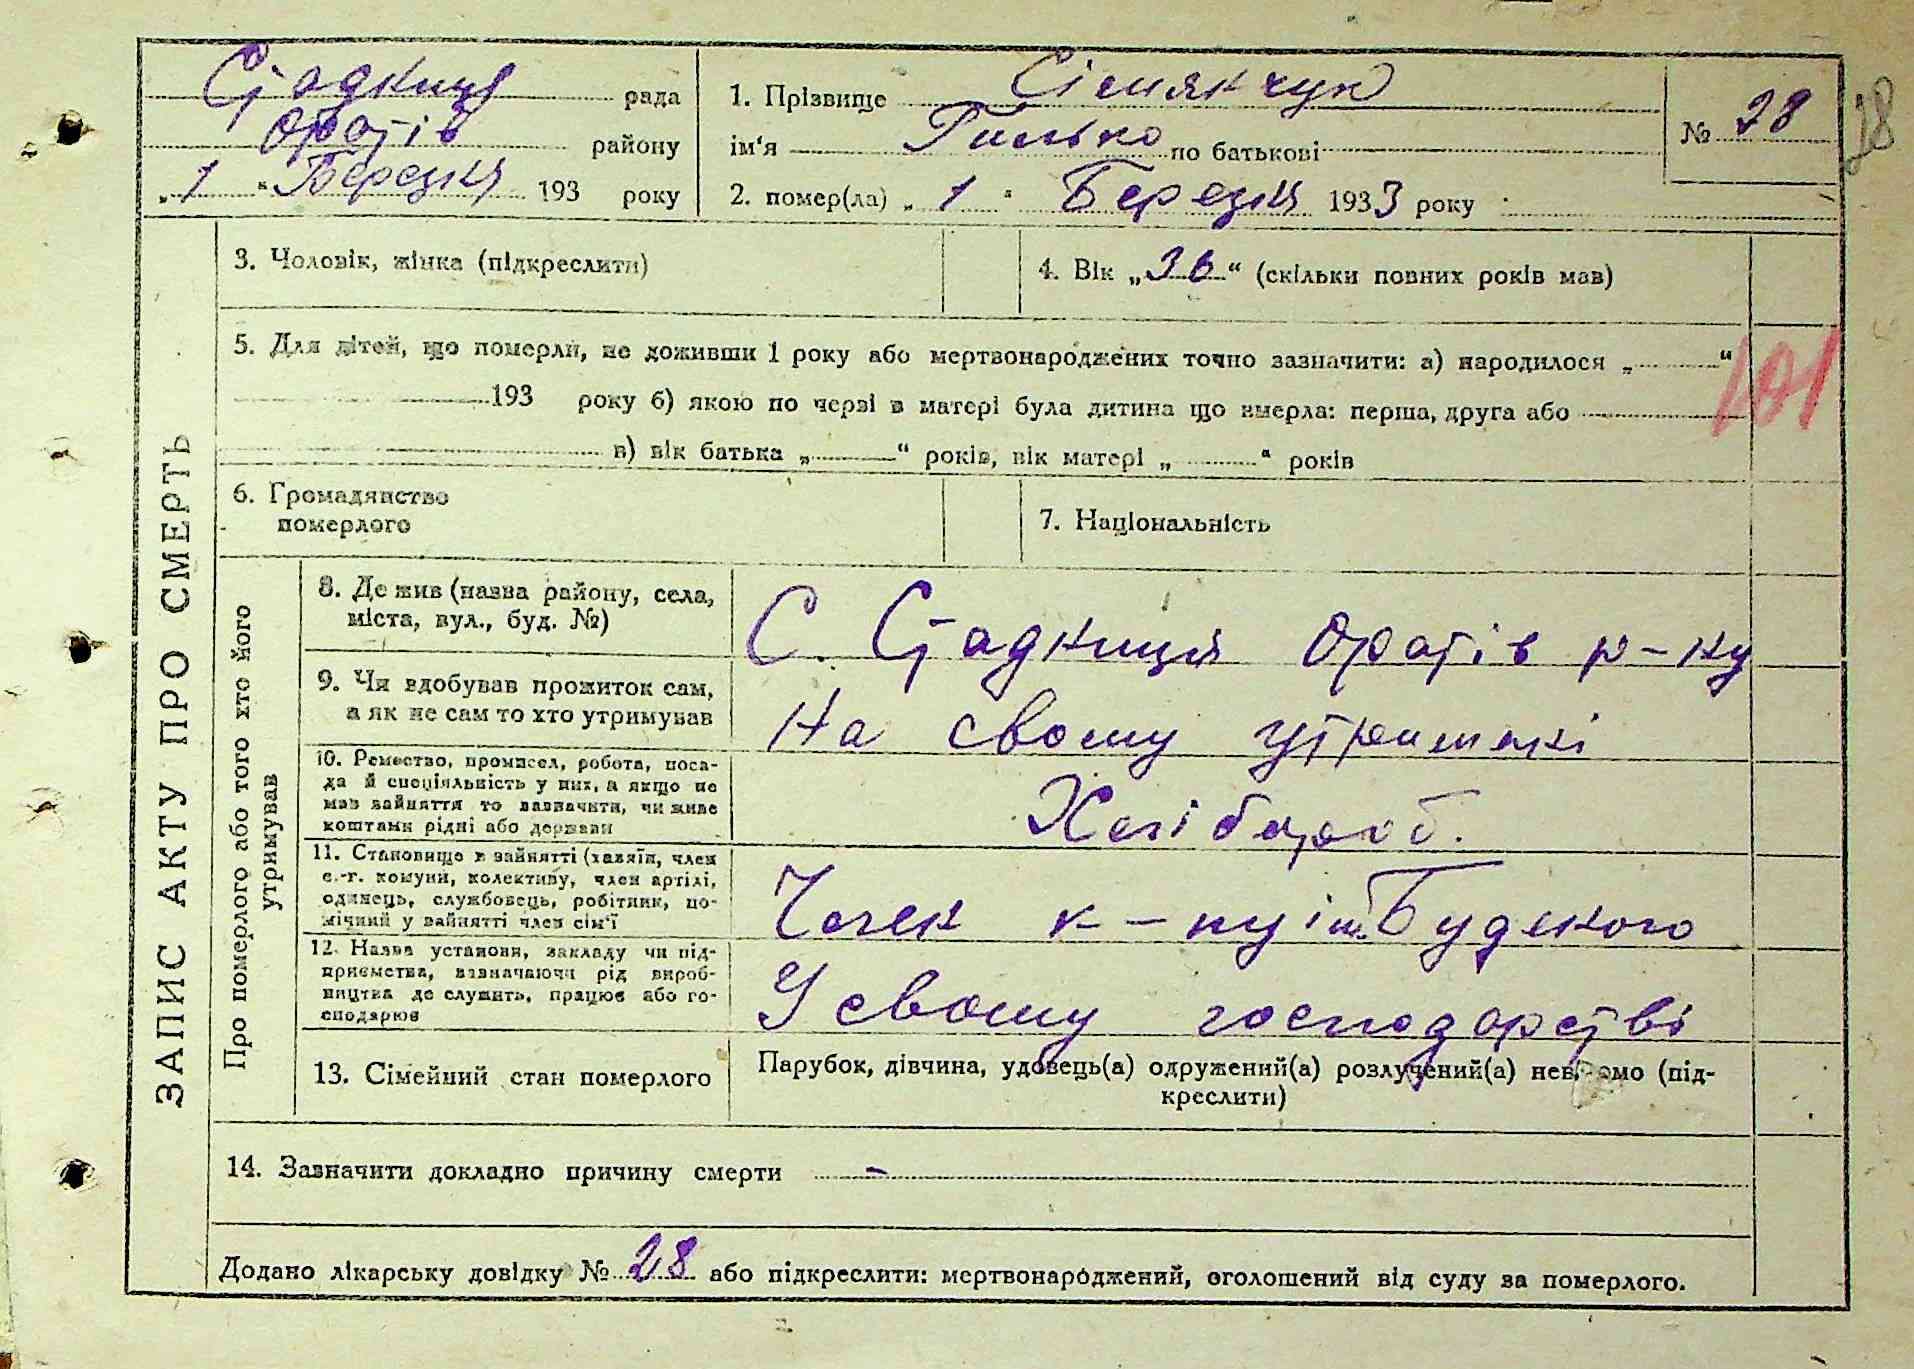 Стадниця рада
Оратів району
„1" Березня 193 року
1. Прізвище Сімянчук
ім'я Гилько по батькові
2. помер(ла) „1" Березня 1933 року
№ 28
28
ЗАПИС АКТУ ПРО СМЕРТЬ
3. Чоловік, жінка (підкреслити)
4. Вік „36" (скільки повних років мав)
5. Для дітей, що померли, не доживши 1 року або мертвонароджених точно зазначити: а) народилося „ "
193 року б) якою по черзі в матері була дитина що вмерла: перша, друга або
в) вік батька „ " років, вік матері „ " років
101
6. Громадянство
померлого
7. Національність
Про померлого або того хто його
утримував
8. Де жив (назва району, села,
міста, вул., буд. №)
С. Стадниця Оратів р-ну
9. Чи здобував прожиток сам,
а як не сам то хто утримував
На свому утриманні
10. Ремество, промисел, робота, поса-
да й спеціяльність у них, а якщо не
мав зайняття то зазначити, чи живе
коштами рідні або держави
Хлібороб.
11. Становище в зайнятті (хазяїн, член
с.-г. комуни, колективу, член артілі,
одинець, службовець, робітник, по-
мічний у зайнятті член сім'ї
Член к-пу ім. Будьоного
12. Назва установи, закладу чи під-
приємства, зазначаючи рід вироб-
ництва де служить, працює або го-
сподарює
У свому господарстві
13. Сімейний стан померлого
Парубок, дівчина, удовець(а) одружений(а) розлучений(а) невідомо (під-
креслити)
14. Зазначити докладно причину смерти –
Додано лікарську довідку № 28 або підкреслити: мертвонароджений, оголошений від суду за померлого.